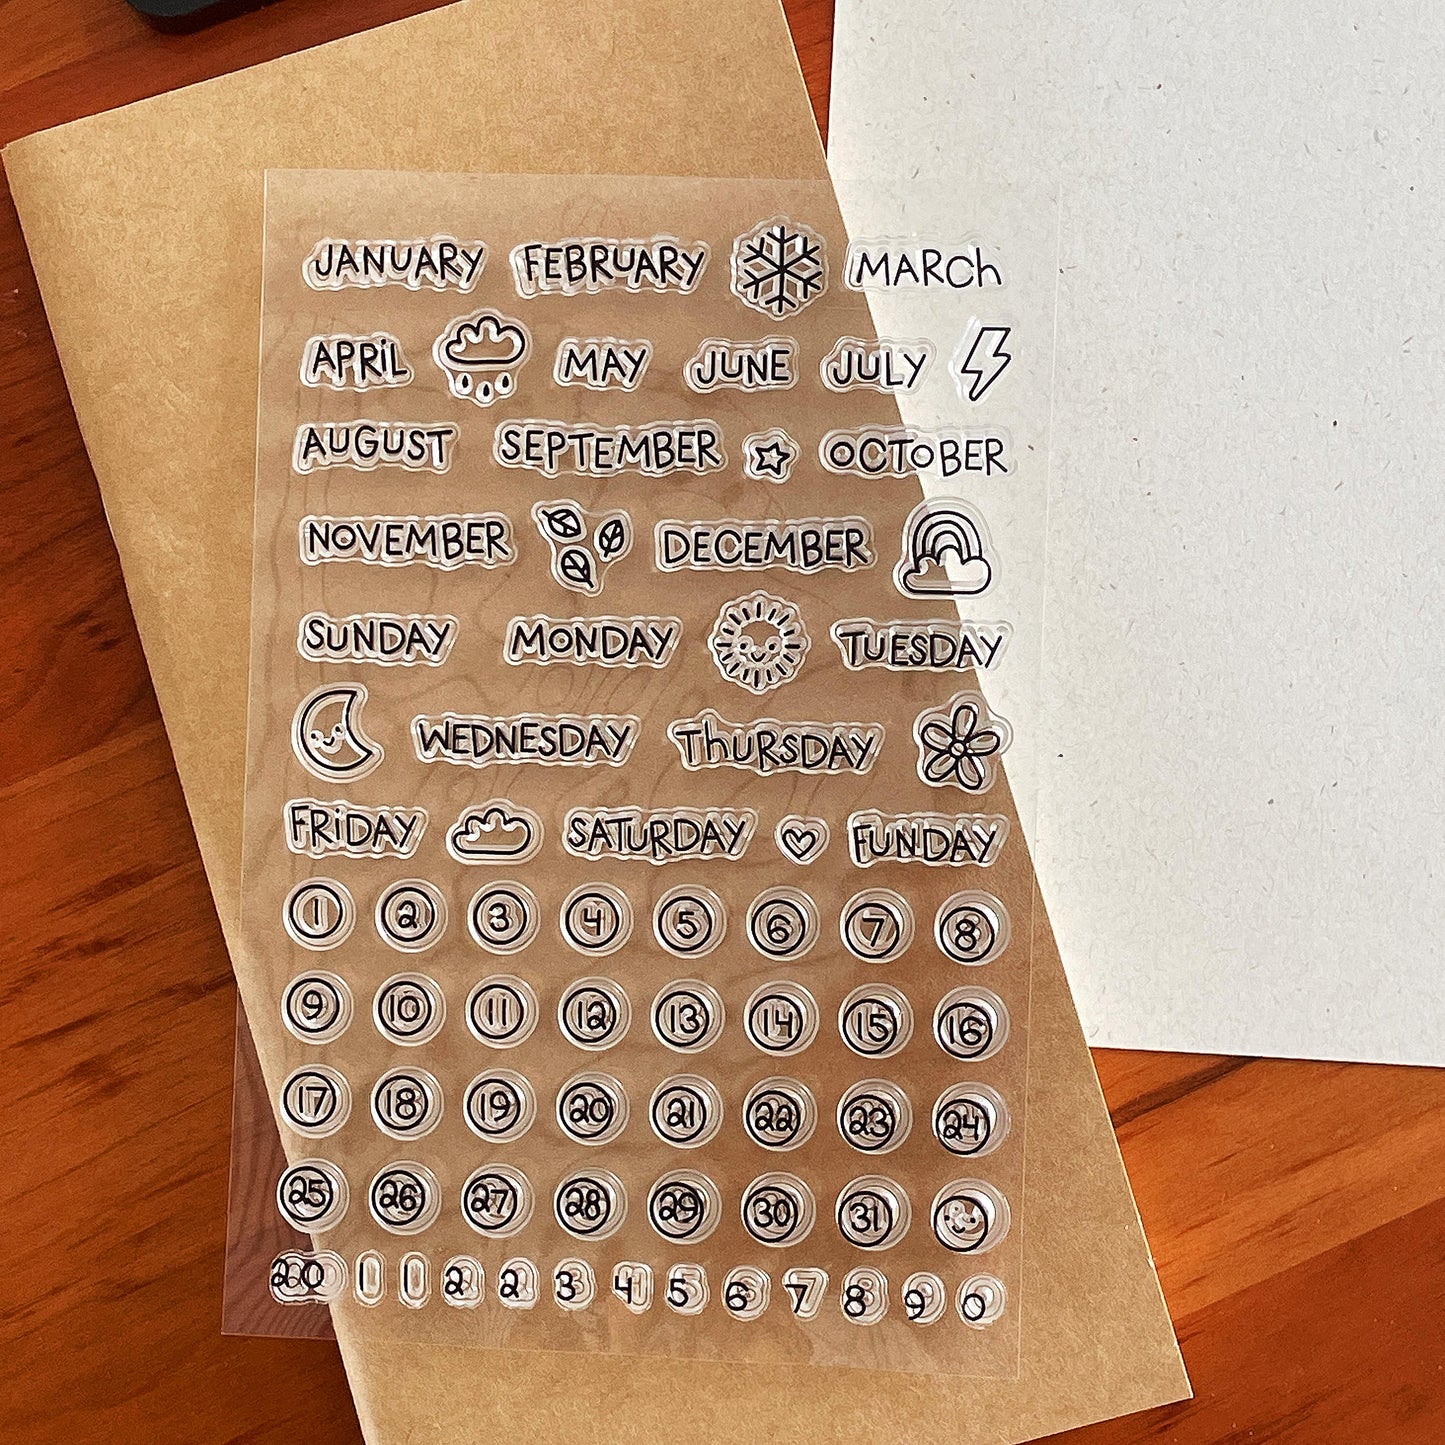 JANUARY FEBRUARY MARCh
APRiL MAY JUNE JULY
AUGUST SEPTEMBER OCTOBER
NOVEMBER DECEMBER
SUNDAY MONDAY TUESDAY
WEDNESDAY ThURSDAY
FRiDAY SATURDAY FUNDAY
1 2 3 4 5 6 7 8
9 10 11 12 13 14 15 16
17 18 19 20 21 22 23 24
25 26 27 28 29 30 31
20 1 1 2 2 3 4 5 6 7 8 9 0